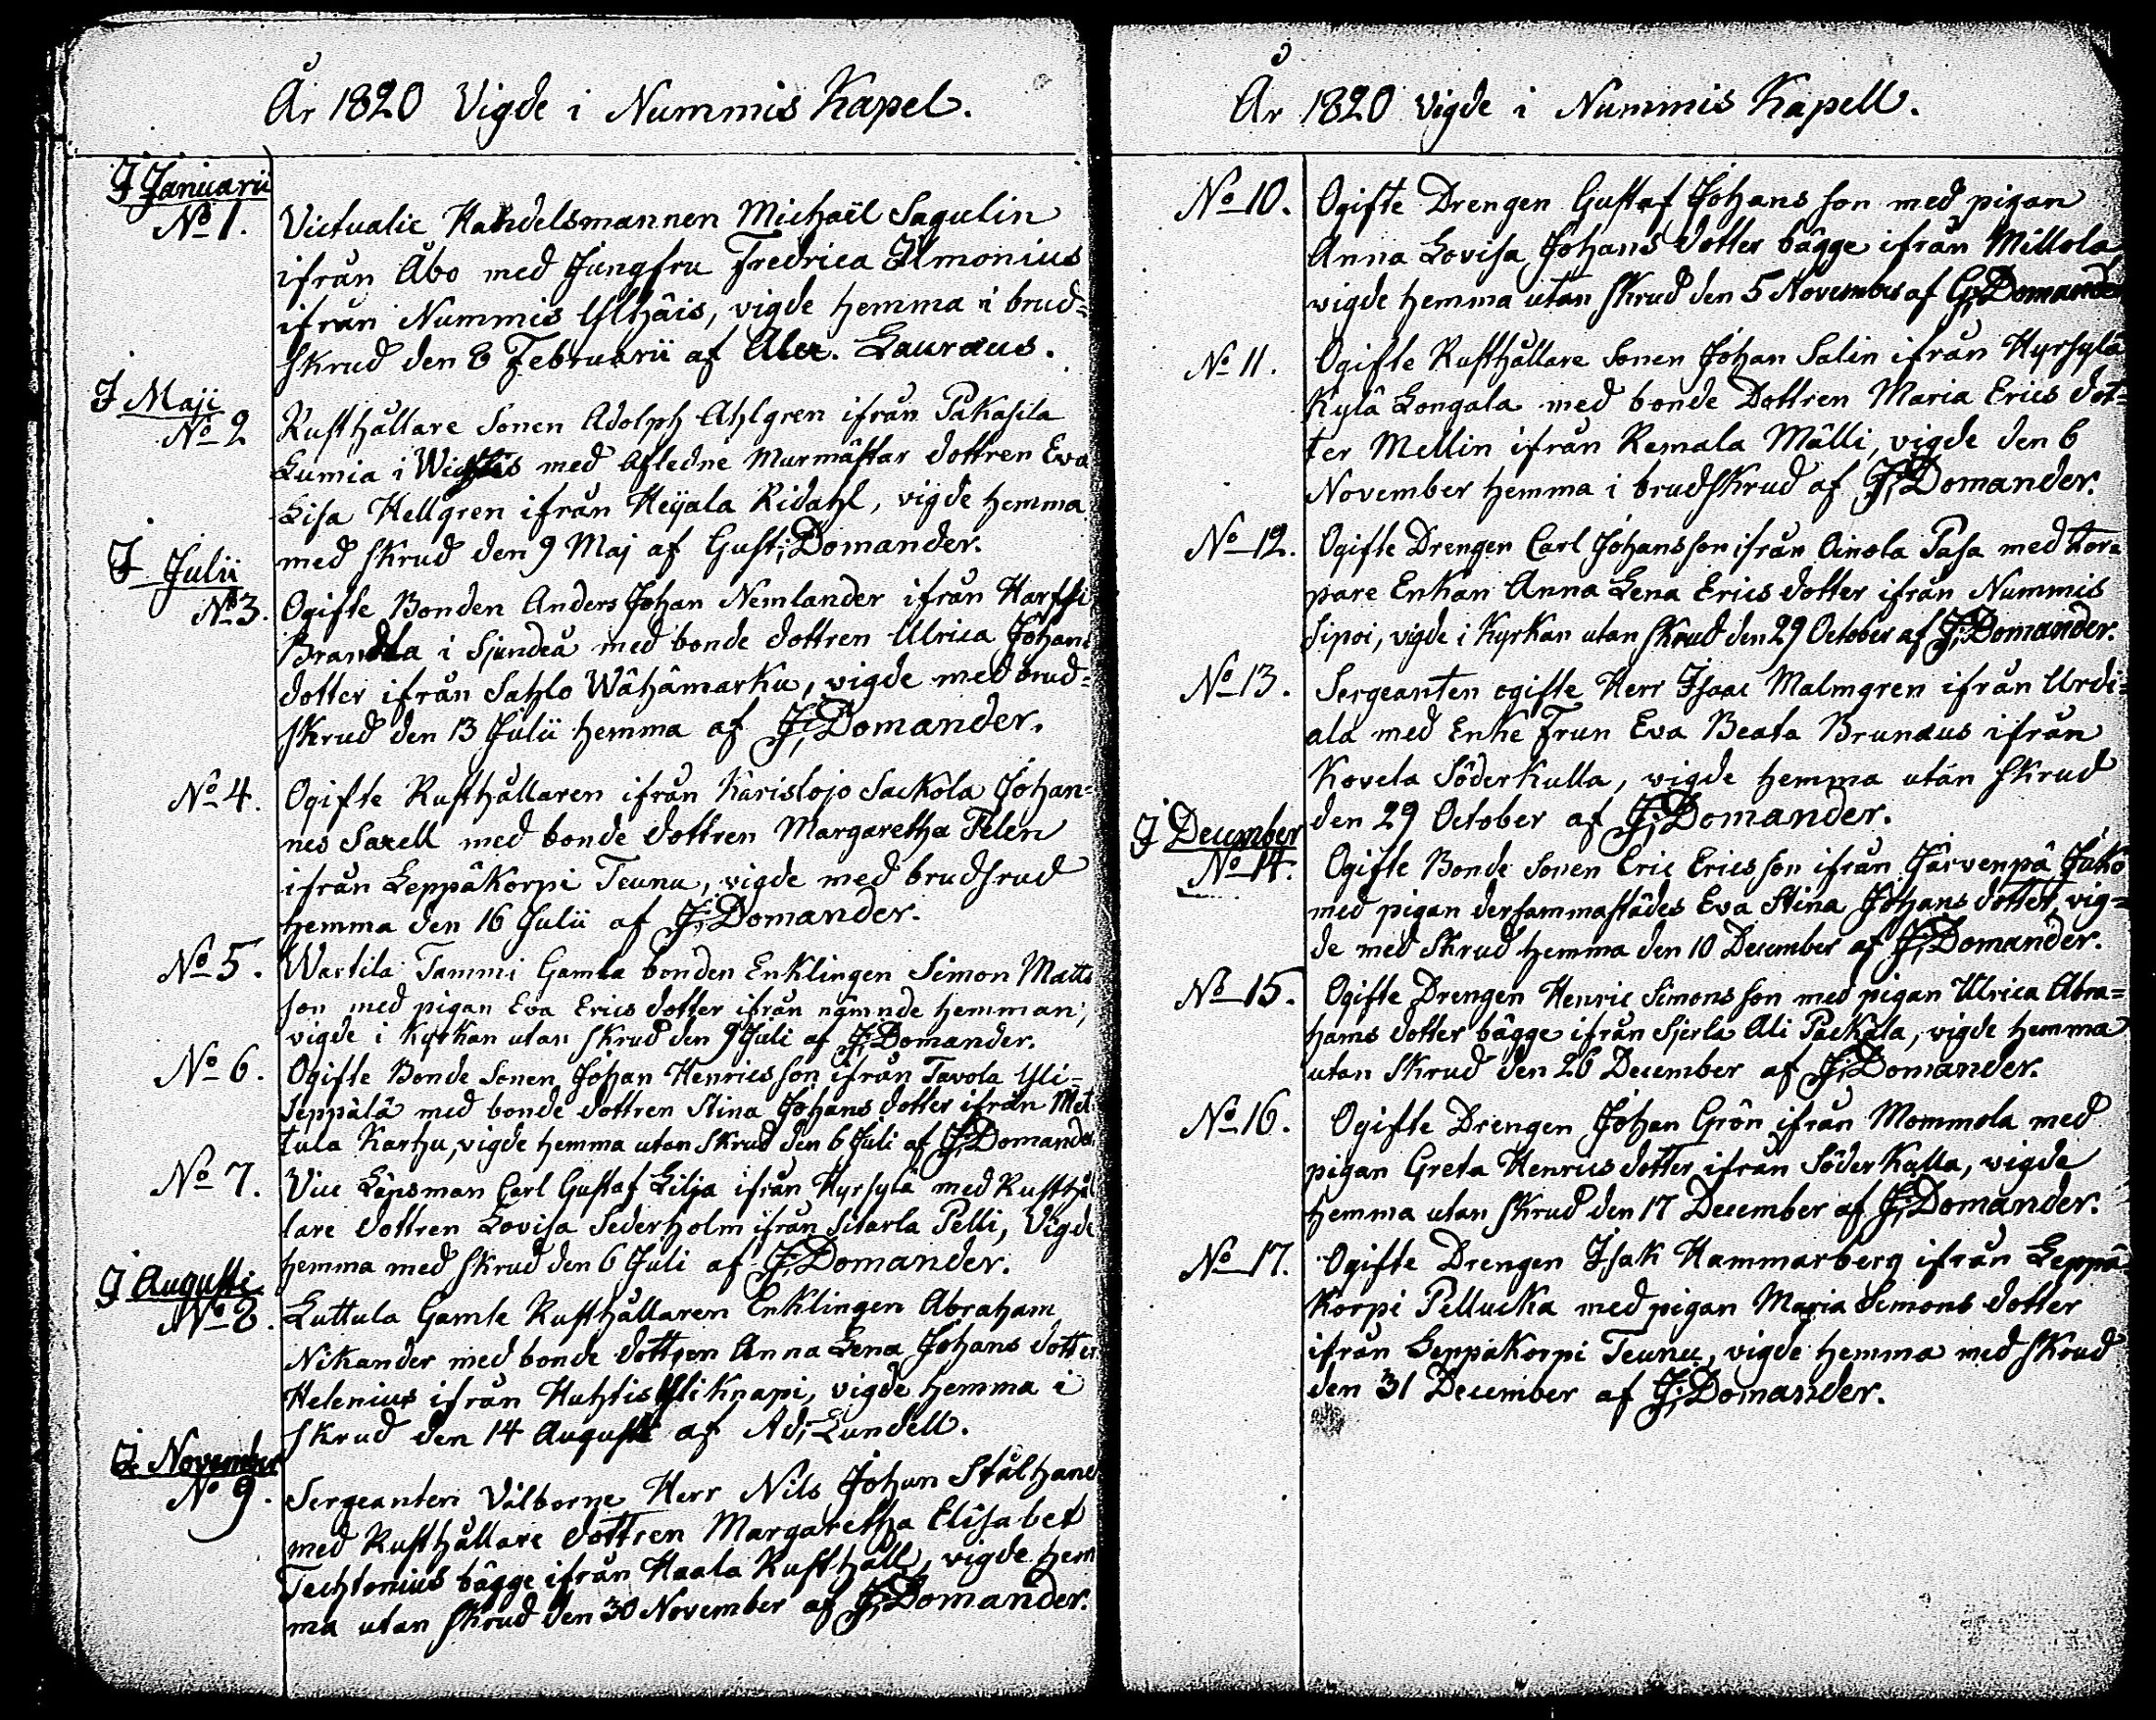 År 1820 Vigde i Nummis Kapel.
I Januarii
No 1. Victualie Handelsmannen Michaël Sagulin
ifrån Åbo med Jungfru Fredrica Ilmonius
ifrån Nummis Ylhäis, vigde hemma i brud=
skrud den 8 Februarii af Alex. Lauræus.
I Maji
No 2 Rusthållare Sonen Adolph Ahlgren ifrån Pakasila
Lumia i Wichtis med Afledne Murmästar dottren Eva
Lisa Hellgren ifrån Heijala Ridahl, vigde hemma
med skrud den 9 Maj af Gust; Domander.
I Julii
No 3. Ogifte Bonden Anders Johan Nemlander ifrån Harfsi
Brandila i Sjundeå med bonde dottren Ulrica Johans
dotter ifrån Sahlo Wähämarku, vigde med brud=
skrud den 13 Julii hemma af G; Domander.
No 4. Ogifte Rusthållaren ifrån Karislojo Sackola Johan=
nes Saxell med bonde dottren Margaretha Pelen
ifrån Leppäkorpi Teunu, vigde med brudsrud
hemma den 16 Julii af G; Domander.
No 5. Wartila Tammi Gamla bonden Enklingen Simon Matts
son med pigan Eva Erics dotter ifrån nämnde hemman,
vigde i Kyrkan utan skrud den 9 Juli af G; Domander.
No 6. Ogifte Bonde Sonen Johan Henricsson ifrån Tavola Yli=
Seppälä med bonde dottren Stina Johans dotter ifrån Met
tula Karhu, vigde hemma utan skrud den 6 Juli af G; Domander
No 7. Vice Länsman Carl Gustaf Lilja ifrån Hyrsylä med Rusthål
lare dottren Lovisa Sederholm ifrån Sitarla Pelli, Vigde
hemma med skrud den 6 Juli af G; Domander.
I Augusti
No 8. Luttula Gamle Rusthållaren Enklingen Abraham
Nikander med bonde dottren Anna Lena Johans dotter
Helenius ifrån Huhtis Yli Knapi, vigde hemma i
skrud den 14 Augusti af Ad; Lundell.
I November
No 9. Sergeanten Välborne Herr Nils Johan Stålhane
med Rusthållare dottren Margaretha Elisabet
Techtonius bägge ifrån Haala Rusthåll, vigde hem
ma utan skrud den 30 November af G; Domander.
År 1820 Vigde i Nummis Kapell.
No 10. Ogifte Drengen Gustaf Johansson med pigan
Anna Lovisa Johans dotter bägge ifrån Millola
vigde hemma utan skrud den 5 November af G; Domander
No 11. Ogifte Rusthållare Sonen Johan Salin ifrån Hyrsylä
Kylä Longala med bonde Dottren Maria Erics dot=
ter Mellin ifrån Remala Mälli, vigde den 6
November hemma i brudskrud af G; Domander.
No 12. Ogifte Drengen Carl Johansson ifrån Oinola Pasa med tor=
pare Enkan Anna Lena Erics dotter ifrån Nummis
Sipoi, vigde i Kyrkan utan skrud den 29 October af G; Domander.
No 13. Sergeanten ogifte Herr Isaac Malmgren ifrån Urdi=
ala med Enke Frun Eva Beata Brunæus ifrån
Kovela Söderkulla, vigde hemma utan skrud
den 29 October af G; Domander.
I December
No 14. Ogifte Bonde Sonen Eric Ericsson ifrån Järvenpä Jukо
med pigan dersammastädes Eva Stina Johans dotter, vig=
de med skrud hemma den 10 December af G; Domander.
No 15. Ogifte Drengen Henric Simonsson med pigan Ulrica Abra=
hams dotter bägge ifrån Sjerla Ali Packala, vigde hemma
utan skrud den 26 December af G; Domander.
No 16. Ogifte Drengen Johan Grön ifrån Mommola med
pigan Greta Henrics dotter ifrån Söderkulla, vigde
hemma utan skrud den 17 December af G; Domander.
No 17. Ogifte Drengen Isak Hammarberg ifrån Leppä
korpi Pellucka med pigan Maria Simons dotter
ifrån Leppäkorpi Teunu, vigde hemma med skrud
den 31 December af G; Domander.